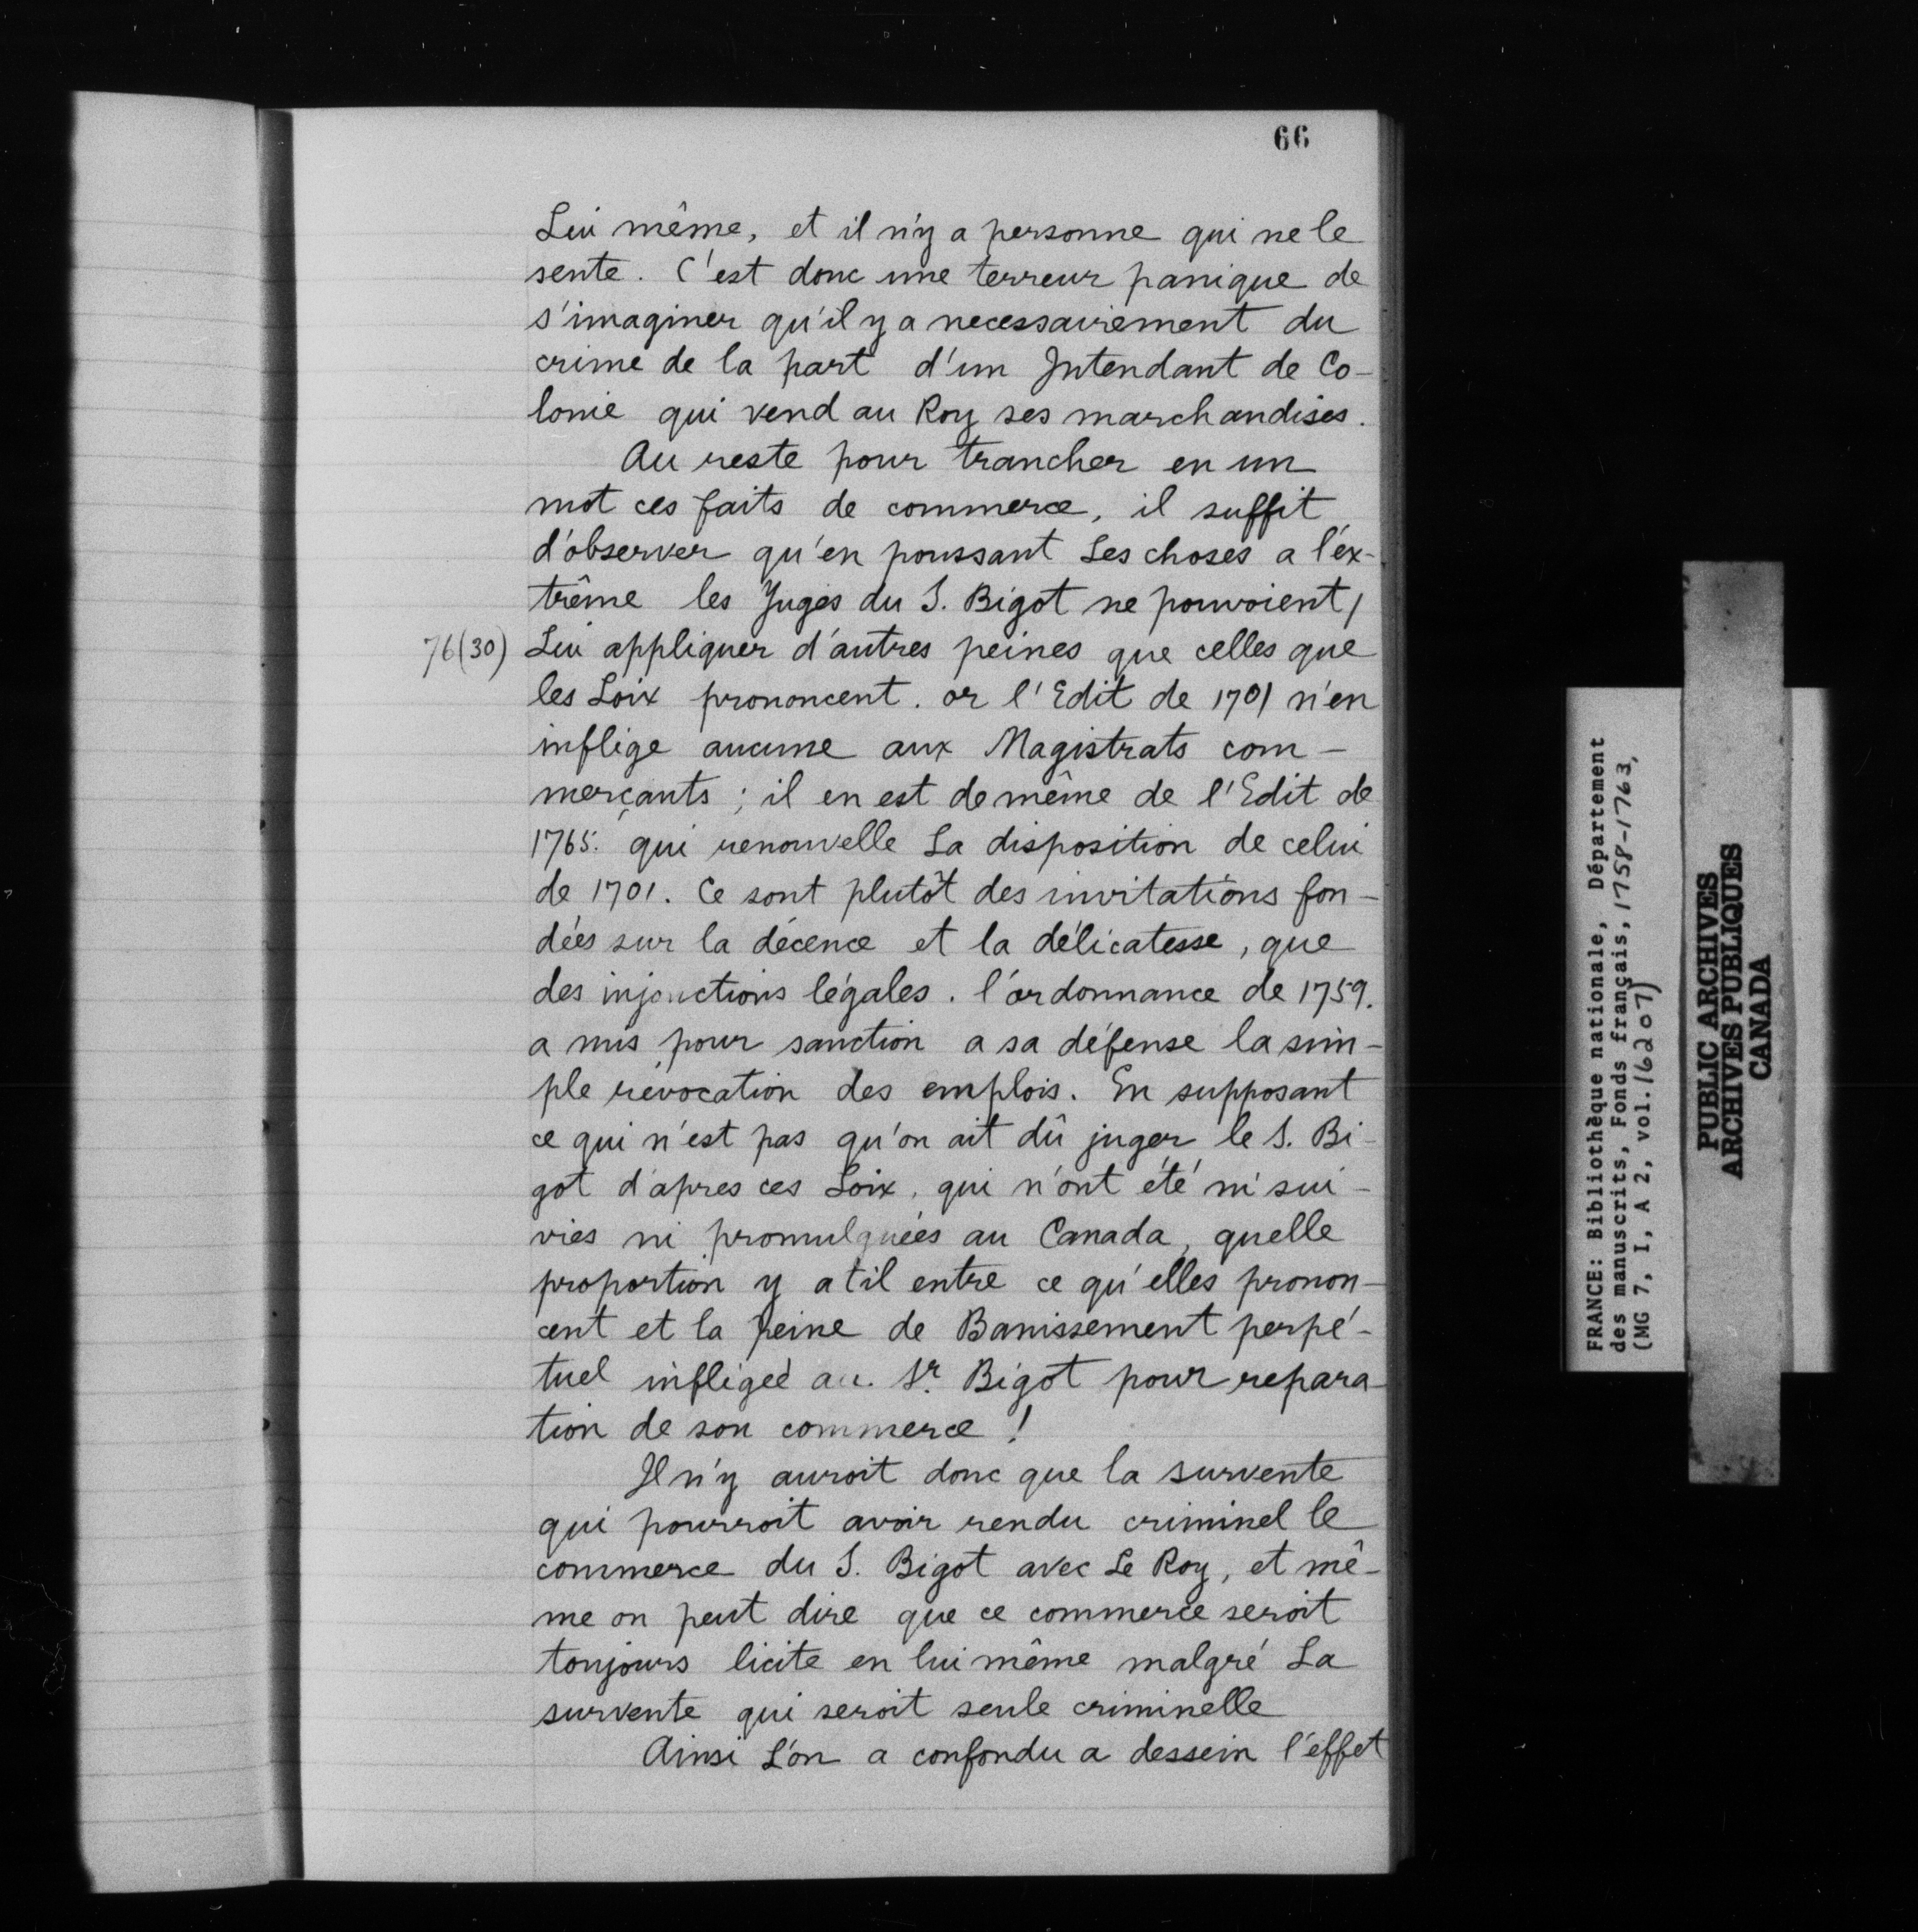 66
Lui même, et il n'y a personne qui ne le
sente. C'est donc une terreur panique de
s'imaginer qu'il y a necessairement du
crime de la part d'un Intendant de Co-
lonie qui vend au Roy ses marchandises.
Au reste pour trancher en un
mot ces faits de commerce, il suffit
d'observer qu'en poussant Les choses a l'éx-
trême les Juges du S. Bigot ne pouvoient/
76(30) Lui appliquer d'autres peines que celles que
les Loix prononcent. or l'Edit de 1701 n'en
inflige aucune aux Magistrats com-
merçants; il en est de même de l'Edit de
1765. qui renouvelle La disposition de celui
de 1701. Ce sont plutôt des invitations fon-
dées sur la décence et la délicatesse, que
des injonctions légales. l'ordonnance de 1759.
a mis pour sanction a sa défense la sim-
ple révocation des emplois. En supposant
ce qui n'est pas qu'on ait dû juger le S. Bi-
got d'apres ces Loix, qui n'ont été ni sui-
vies ni promulguées au Canada, quelle
proportion y a til entre ce qu'elles pronon-
cent et la peine de Banissement perpé-
tuel infligeé au Sr. Bigot pour repara-
tion de son commerce!
Il n'y auroit donc que la survente
qui pourroit avoir rendu criminel le
commerce du S. Bigot avec Le Roy, et mê-
me on peut dire que ce commerce seroit
toujours licite en lui même malgré La
survente qui seroit seule criminelle
Ainsi L'on a confondu a dessein l'effet
FRANCE: Bibliothèque nationale, Département
des manuscrits, Fonds français, 1758-1763,
(MG 7, I, A 2, vol. 16207)
PUBLIC ARCHIVES
ARCHIVES PUBLIQUES
CANADA